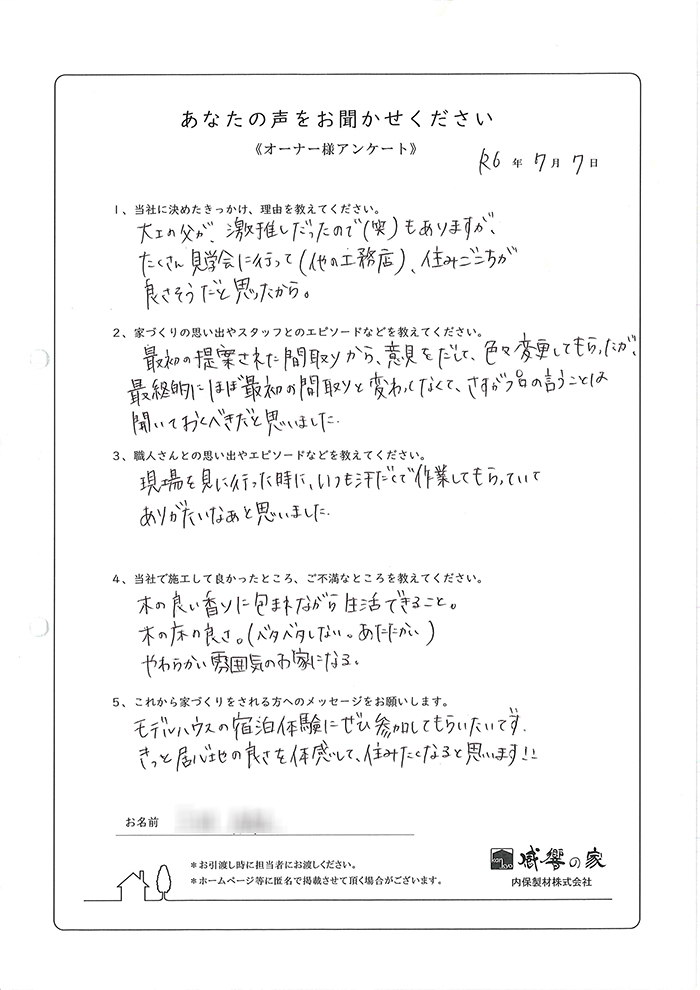 あなたの声をお聞かせください
《オーナー様アンケート》
R6年7月7日
1、当社に決めたきっかけ、理由を教えてください。
大工の父が、激推しだったので(笑)もありますが、
たくさん見学会に行って(他の工務店)、住みごこちが
良さそうだと思ったから。
2、家づくりの思い出やスタッフとのエピソードなどを教えてください。
最初の提案された間取りから、意見をだして、色々変更してもらったが、
最終的にほぼ最初の間取りと変わらなくて、さすがプロの言うことは
聞いておくべきだと思いました.
3、職人さんとの思い出やエピソードなどを教えてください。
現場を見に行った時に、いつも汗だくで作業してもらっていて
ありがたいなぁと思いました.
4、当社で施工して良かったところ、ご不満なところを教えてください。
木の良い香りに包まれながら生活できること。
木の床の良さ。(ベタベタしない。あたたかい)
やわらかい雰囲気のお家になる。
5、これから家づくりをされる方へのメッセージをお願いします。
モデルハウスの宿泊体験にぜひ参加してもらいたいです.
きっと居心地の良さを体感して、住みたくなると思います!!
お名前
*お引渡し時に担当者にお渡しください。
*ホームページ等に匿名で掲載させて頂く場合がございます。
kan kyo 感響の家
内保製材株式会社